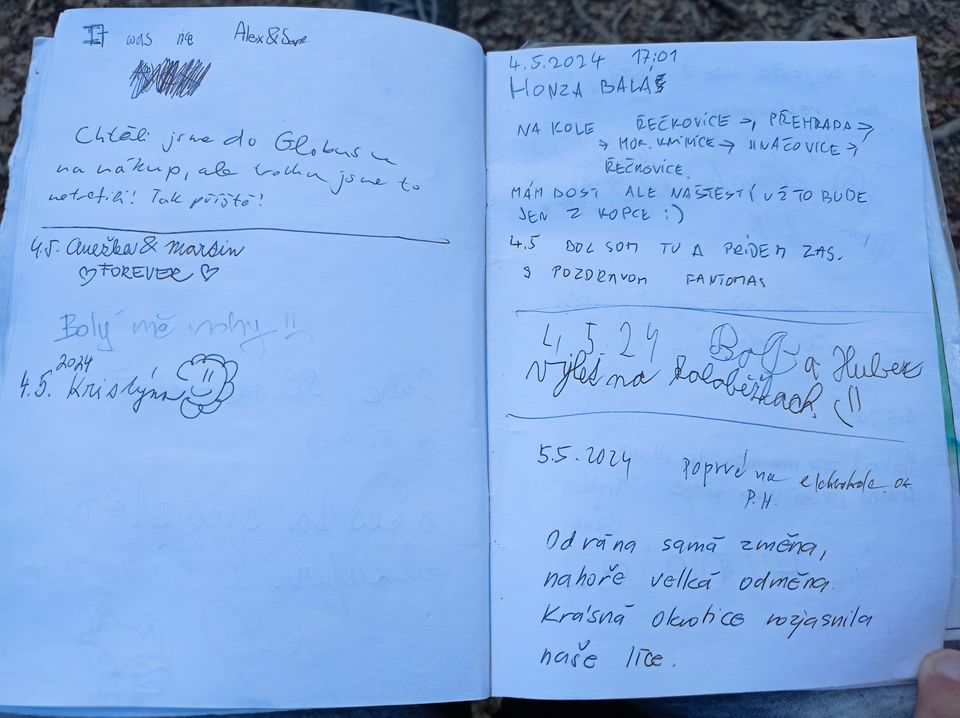 It was me Alex&
Chtěli jsme do Globusu
na nákup, ale trochu jsme to
netrefili! Tak příště!
4.5. Anežka & Martin
♡FOREVER♡
Bolý mě nohy
2024
4.5. Kristýna
4.5.2024 17:01
HONZA BALÁŠ
NA KOLE ŘEČKOVICE →, PŘEHRADA →
→ MOR. KNÍNICE → JINAČOVICE →,
ŘEČKOVICE.
MÁM DOST ALE NAŠTESTÍ UŽ TO BUDE
JEN Z KOPCE :)
4.5 BOL SOM TU A PRÍDEM ZAS.
S POZDRAVOM FANTOMAS
4.5.24 a Hubert
Výlet na koloběžkach.
5.5.2024 Poprvé na elektrokole.
P.H.
Od rána samá změna,
nahoře velká odměna.
Krásná okolice rozjasnila
naše líce.